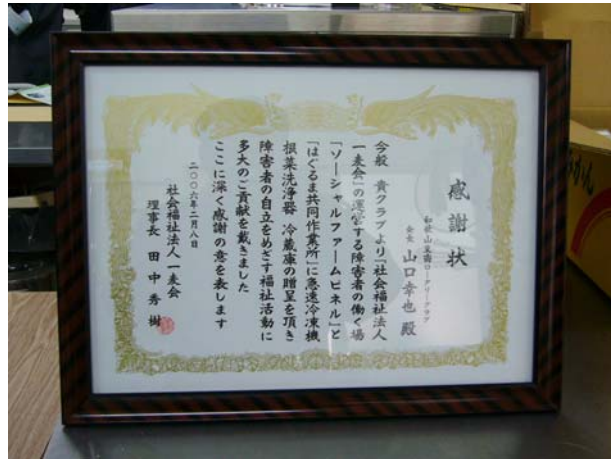 感謝状
和歌山東南ロータリークラブ
会長 山口幸也 殿
今般 貴クラブより「社会福祉法人
一麦会」の運営する障害者の働く場
「ソーシャルファームピネル」と
「はぐるま共同作業所」に急速冷凍機
根菜洗浄器 冷蔵庫の贈呈を頂き
障害者の自立をめざす福祉活動に
多大のご貢献を戴きました
ここに深く感謝の意を表します
二〇〇六年二月八日
社会福祉法人一麦会
理事長 田中秀樹
みかん